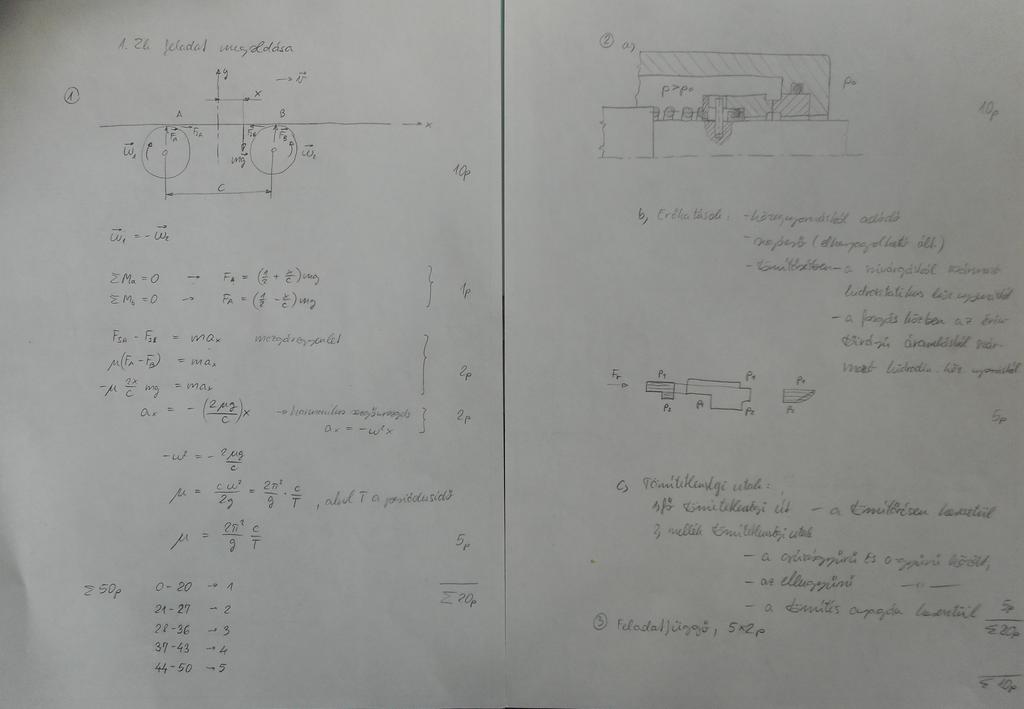 1. Zh. feladat megoldása
①
y
→ v⃗
x
A
B
x
F⃗A
FSA
FSB
F⃗B
ω⃗1
mg⃗
ω⃗2
c
10p
ω⃗1 = -ω⃗2
ΣMa = 0 → FB = (1/2 + x/c) mg
ΣMb = 0 → FA = (1/2 - x/c) mg
1p
FSA - FSB = max mozgásegyenlet
μ(FA - FB) = max
-μ 2x/c mg = max
2p
ax = -(2μg/c)x → harmonikus rezgőmozgás
ax = -ω²x
2p
-ω² = -2μg/c
μ = cω²/2g = 2π²/g · c/T , ahol T a periódusidő
μ = 2π²/g c/T
5p
Σ50p
0-20 → 1
21-27 → 2
28-36 → 3
37-43 → 4
44-50 → 5
Σ20p
② a,
p>p0
p0
10p
b, Erőhatások: - közegnyomásból adódó
- rugóerő (elhanyagolható ált.)
- tömítőrésben - a szivárgásból származó
hidrosztatikus köz. nyomásból
- a forgás közben az
áramlásból szár-
mazó hidrodin. köz. nyomásból
Fr
p1
p2
p1
p1
p2
p1
p2
5p
c, Tömítetlenségi utak:
1, fő tömítetlenségi út - a tömítőrésen keresztül
2, mellék tömítetlenségi utak
- a csúszógyűrű és o-gyűrű között,
- az ellengyűrű —〃—
- a tömítés anyaga keresztül
5p
Σ20p
③ Feladatfüggő, 5×2p
Σ10p